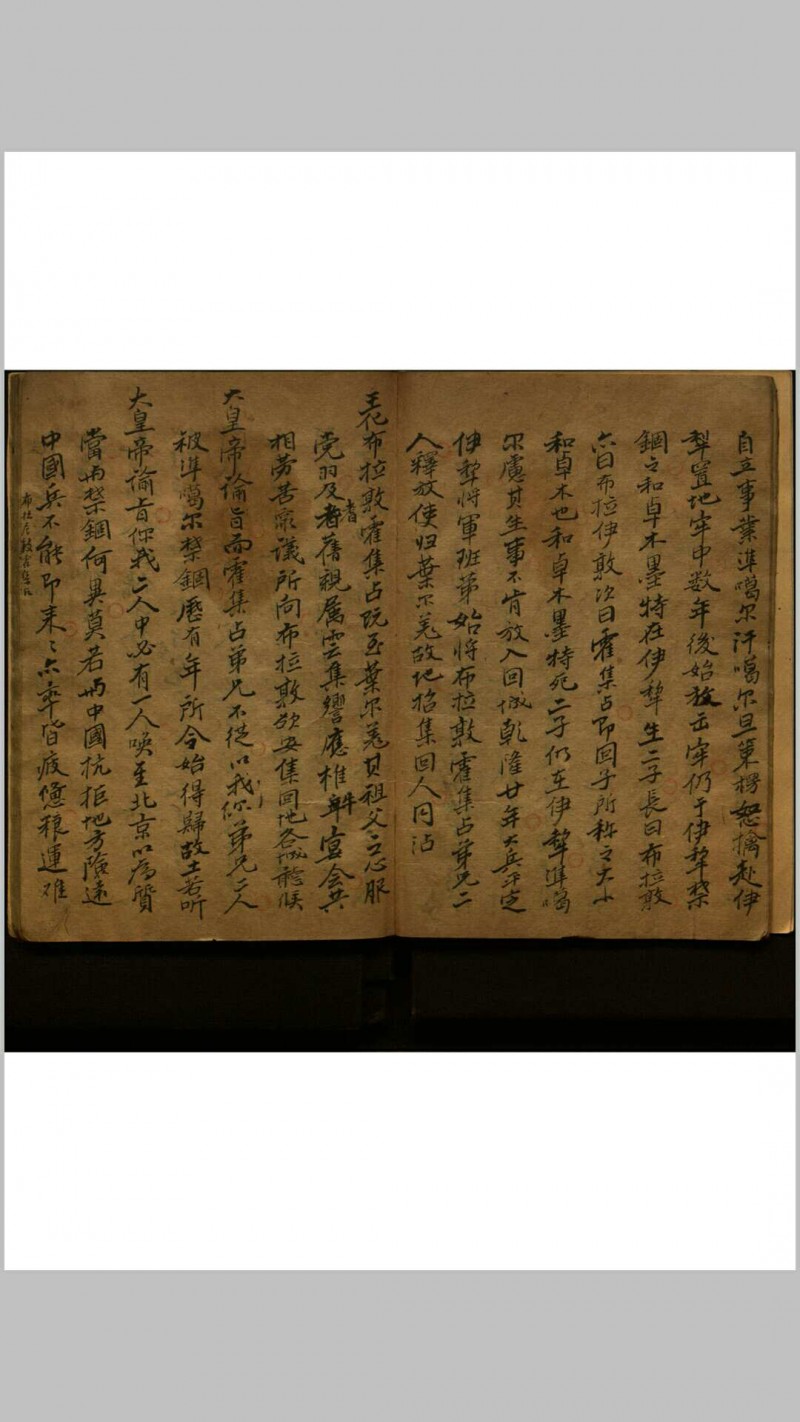 自立事業準噶尔汗噶尔旦策楞怒擒赴伊
犁置地牢中数年後始放出牢仍于伊犁禁
錮之和卓木墨特在伊犁生二子長曰布拉敦
亦曰布拉伊敦次曰霍集占即回子所称之大小
和卓木也和卓木墨特死二子仍在伊犁準噶
尔慮其生事不肯放入回城乾隆廿年大兵平定
伊犁将軍班第始将布拉敦霍集占弟兄二
人釋放使归葉尔羌故地招集回人同沾
王化布拉敦霍集占既至葉尔羌其祖父之心服
党羽及耆舊親属雲集響應椎牛宴会共
相劳苦衆議所向布拉敦欲安集回地各城聽候
大皇帝諭旨而霍集占弟兄不從以我你弟兄二人
被準噶尔禁錮歷有年所今始得歸故土若听
大皇帝諭旨你我二人中必有一人喚至北京以為質
當與禁錮何異莫若與中國抗拒地方險遠
中國兵不能即来々亦率皆疲憊粮運难